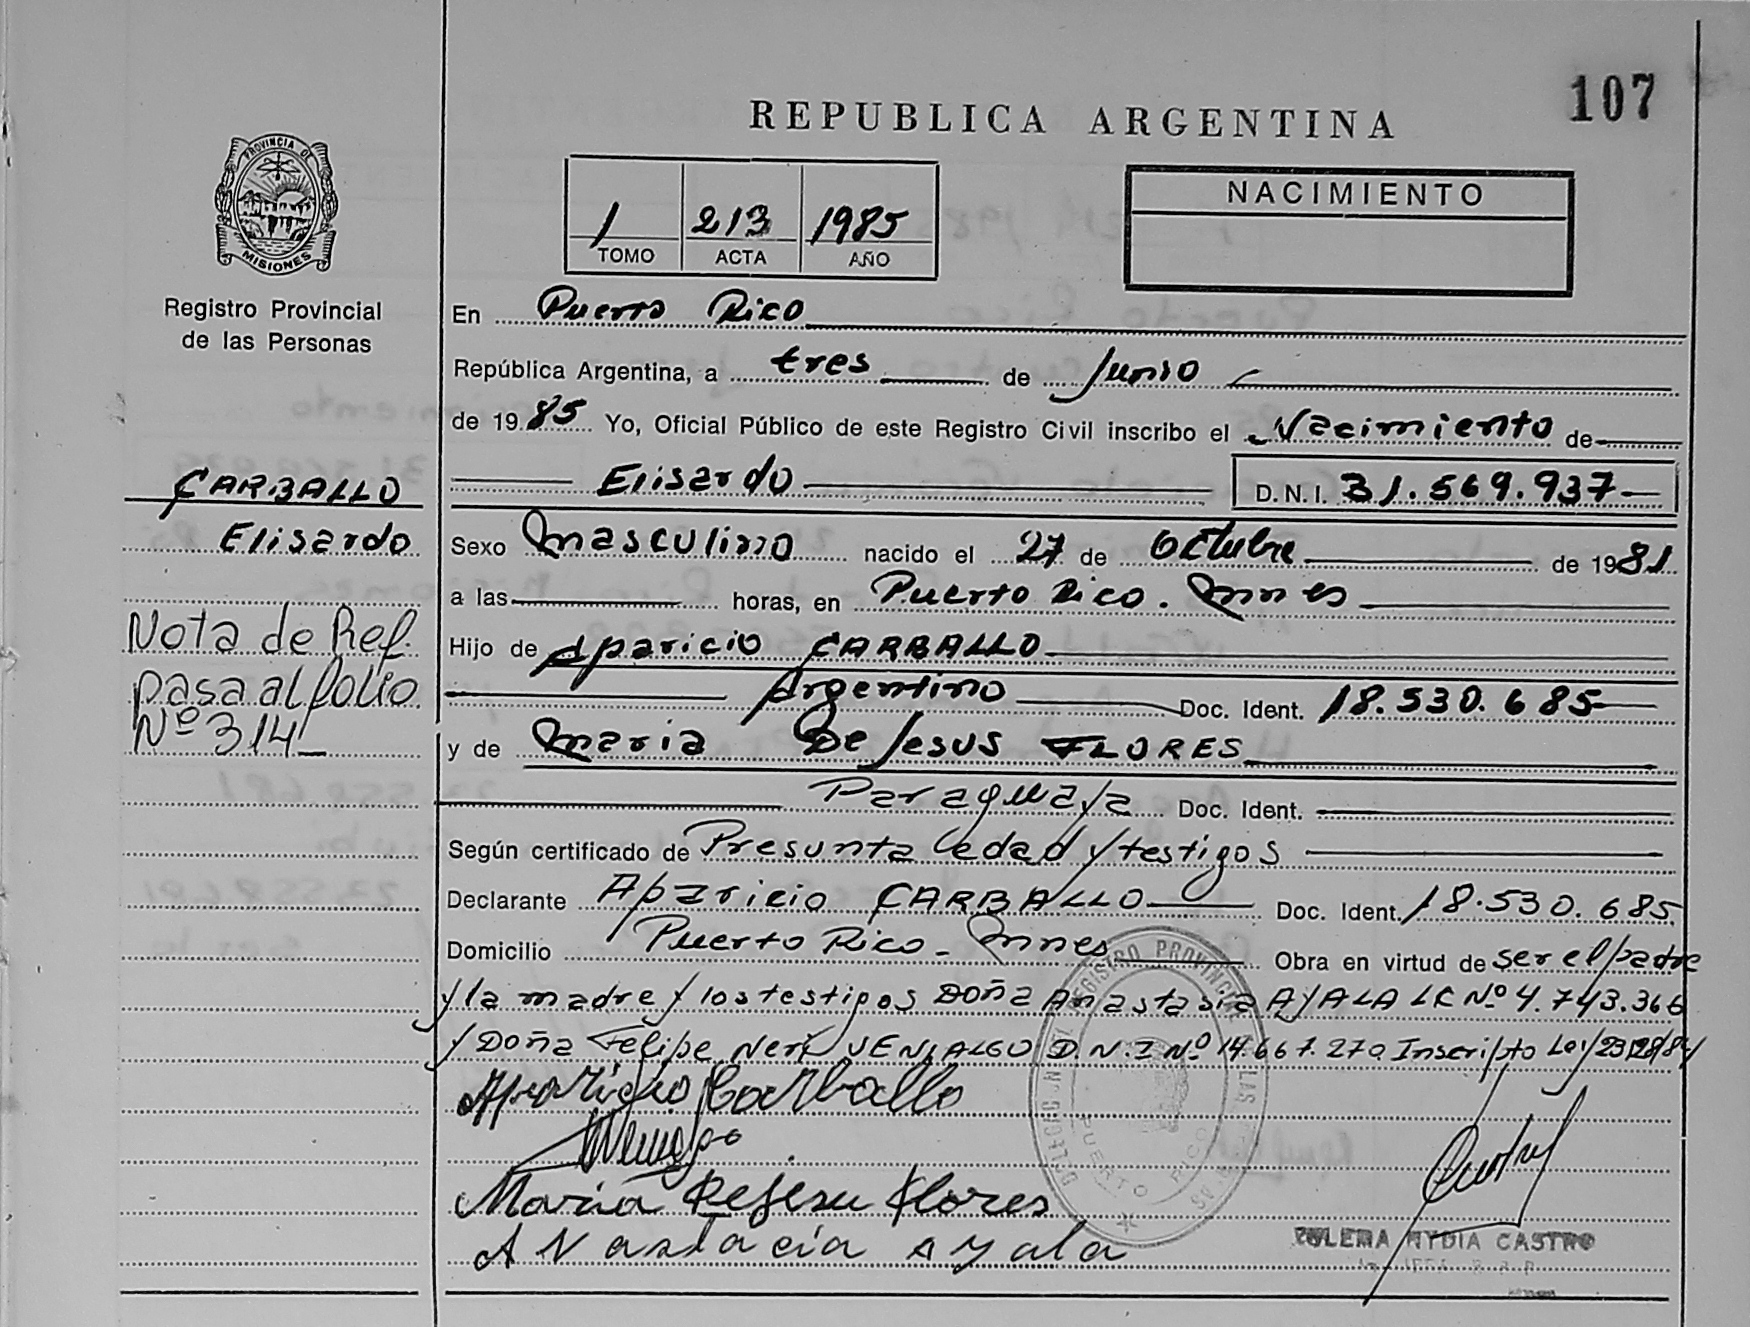 107
REPUBLICA ARGENTINA
PROVINCIA DE
MISIONES
Registro Provincial
de las Personas
1 213 1985
TOMO ACTA AÑO
NACIMIENTO
En Puerto Rico
República Argentina, a tres de Junio
de 1985 Yo, Oficial Público de este Registro Civil inscribo el Nacimiento de
Elisardo D.N.I. 31.569.937
CARBALLO
Elisardo
Nota de Ref.
pasa al folio
Nº 314
Sexo masculino nacido el 27 de Octubre de 1981
a las horas, en Puerto Rico. Mnes
Hijo de Aparicio CARBALLO
Argentino Doc. Ident. 18.530.685
y de Maria De Jesus FLORES
Paraguaya Doc. Ident.
Según certificado de Presunta edad y testigos
Declarante Aparicio CARBALLO Doc. Ident. 18.530.685
Domicilio Puerto Rico - Mnes Obra en virtud de ser el padre
y la madre y los testigos Doña Anastasia AYALA LC Nº 4.743.366
y Doña Felipe Neri VENIALGO D.N.I Nº 14.667.270 Inscripto Ley
Aparicio Carballo
Maria Dejesu Flores
Anastacia Ayala
REGISTRO PROVINCIAL DE LAS
PUERTO RICO
ZULEMA NYDIA CASTRO